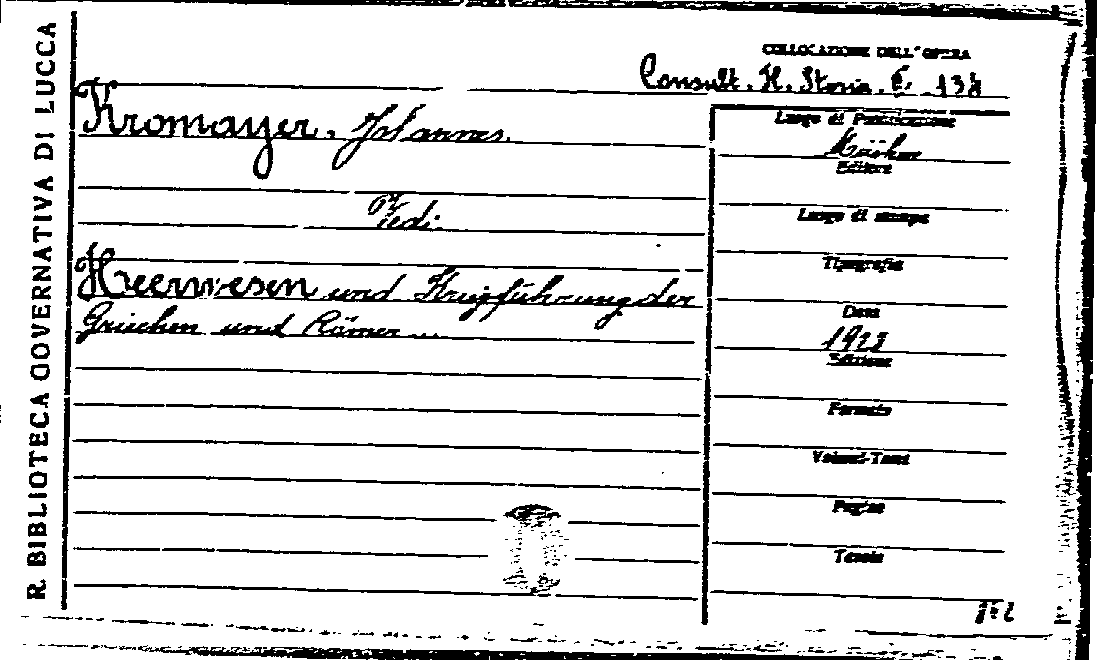 R. BIBLIOTECA GOVERNATIVA DI LUCCA
COLLOCAZIONE DELL'OPERA
Consult. H. Storia. E. 138
Kromayer, Johannes.
Vedi:
Heerwesen und Kriegführung der
Griechen und Römer ...
Luogo di Pubblicazione
Editore
Luogo di stampa
Tipografia
Data
1928
Edizione
Formato
Volumi-Tomi
Pagine
Tavole